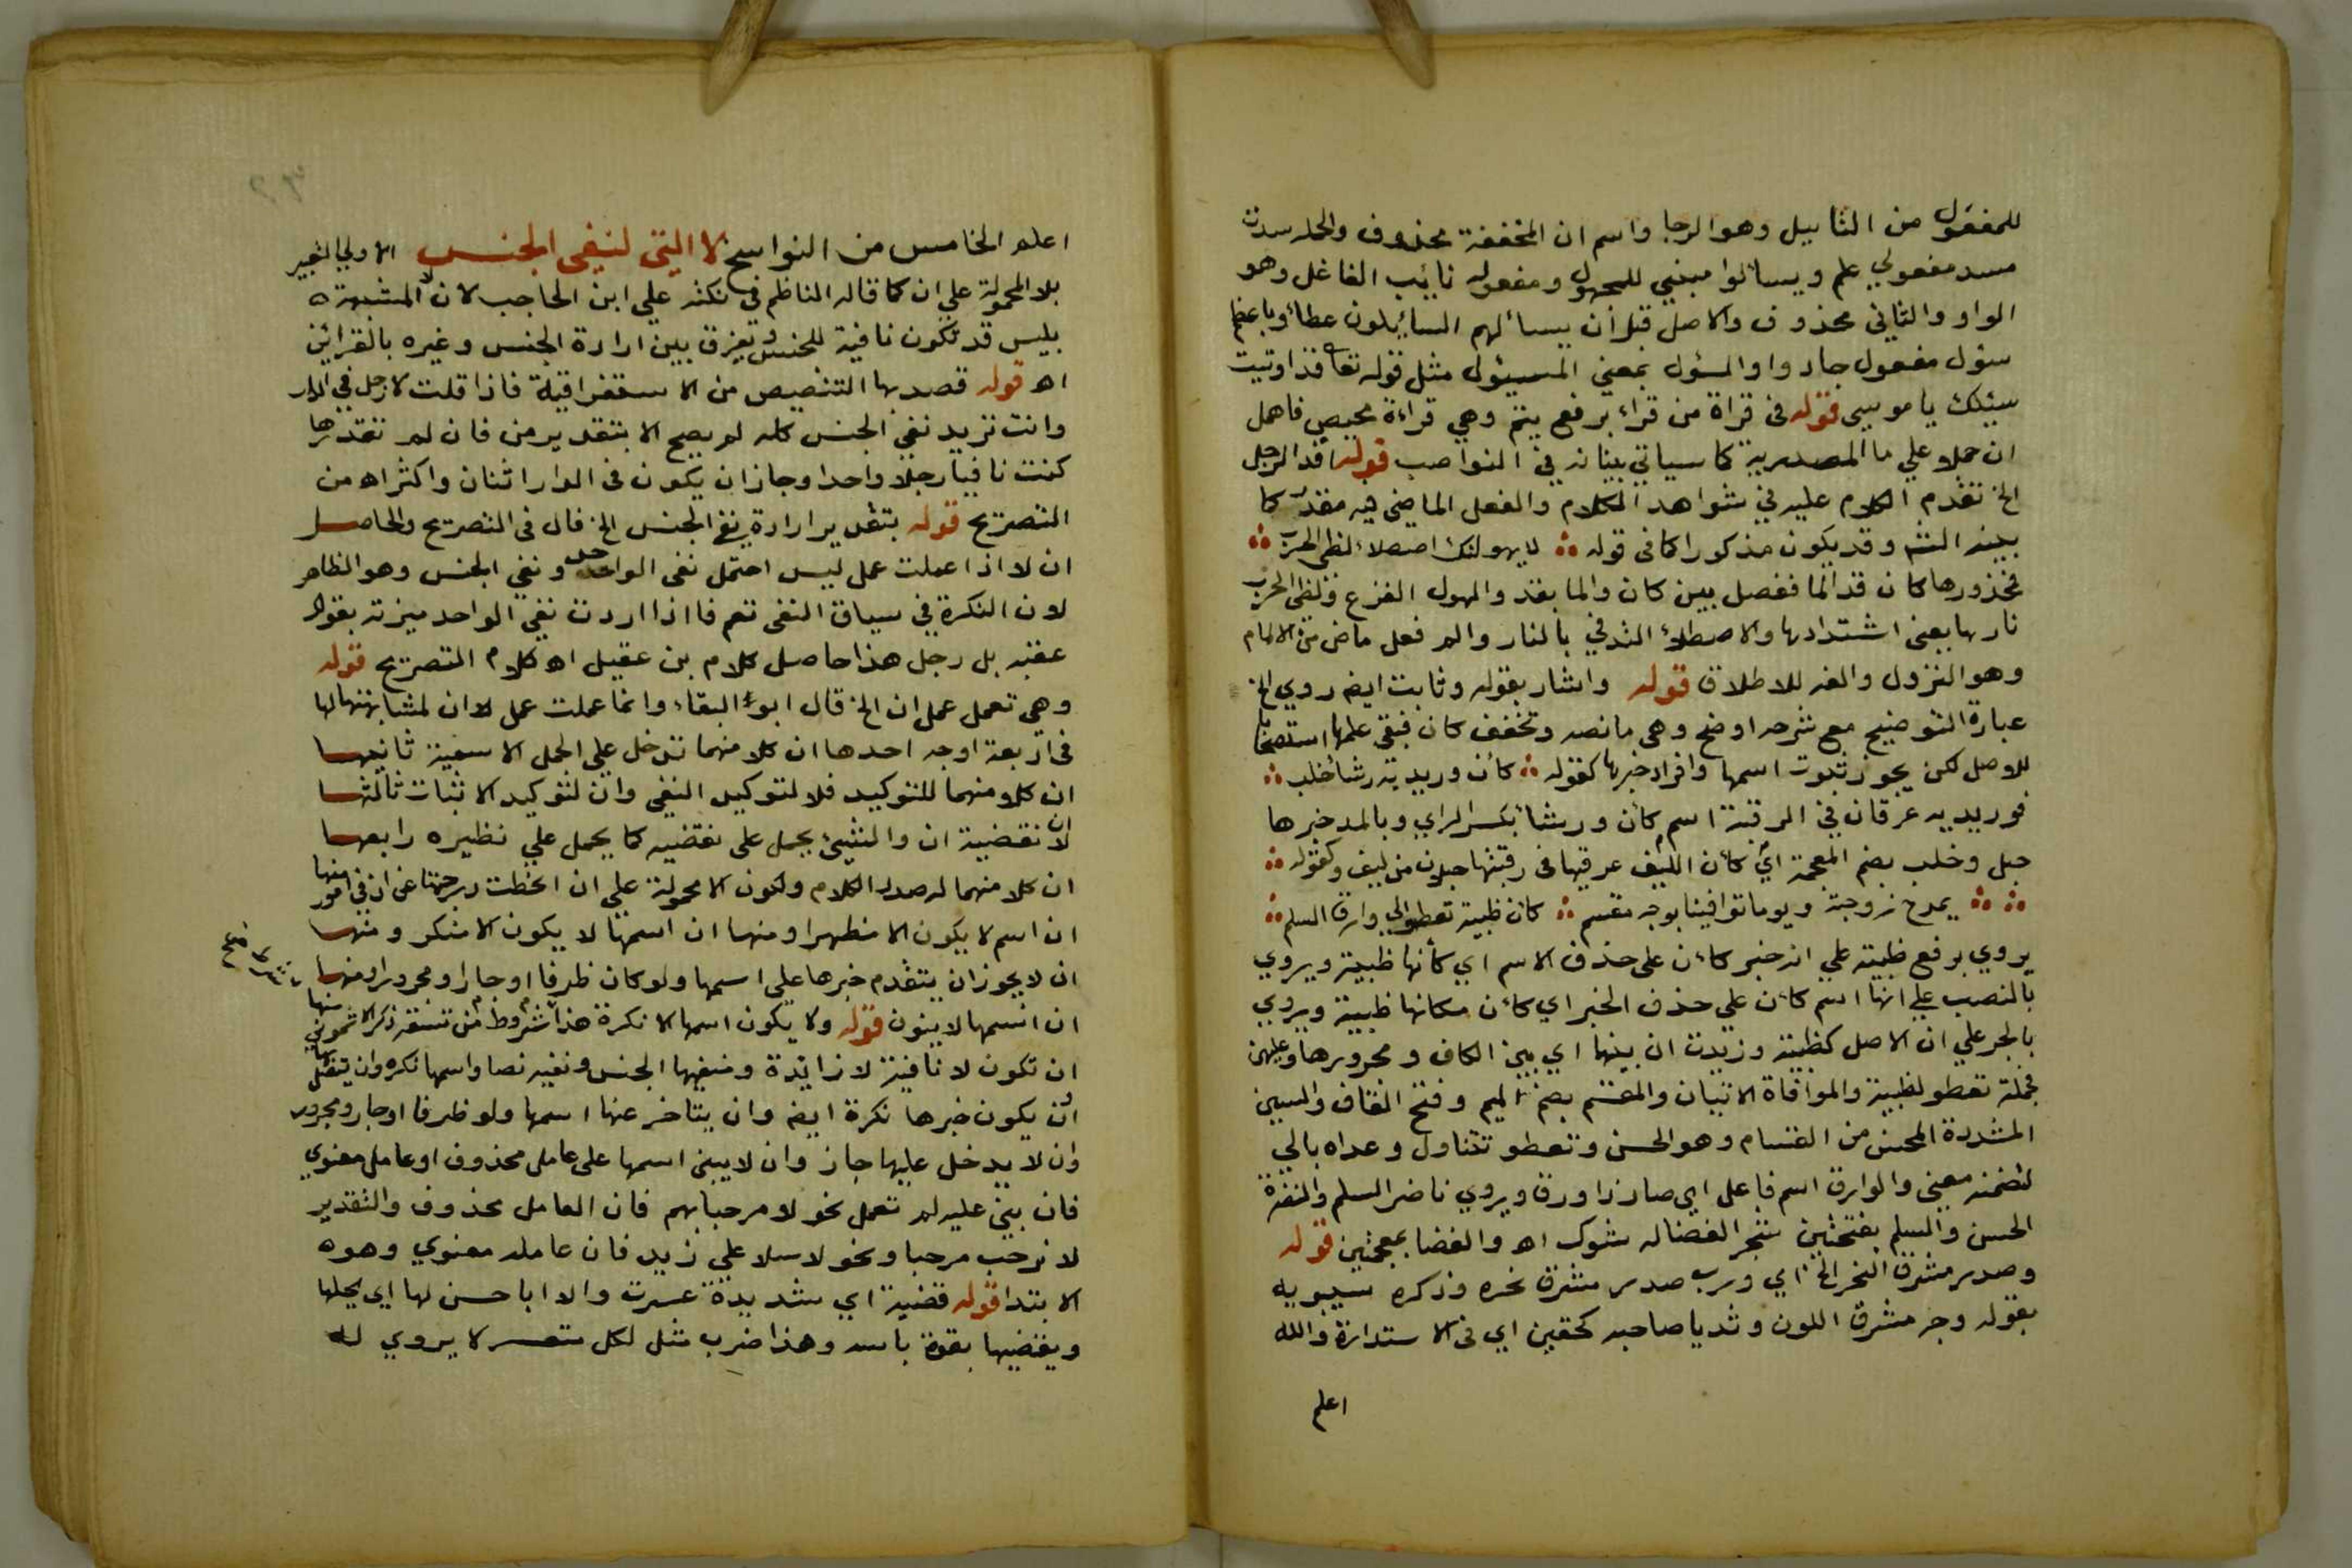 للمفعول من التاميل وهو الرجا واسم ان المخففة محذوف والجملة سدت
مسد مفعولي علم ويسألوا مبني للمجهول ومفعوله نائب الفاعل وهو
الواو والثاني محذوف والاصل قبل أن يسألهم السائلون عطاء وباعظم
سؤل مفعول جادوا والمسؤل بمعني المسئول مثل قوله تعا قد اوتيت
سئلك يا موسي قوله في قراة من قراء برفع يتم وهي قراءة محيصن فاهمل
ان حملا علي ما المصدرية كما سياتي بيانه في النواصب قوله افد الرجل
الخ تقدم الكلام عليه في شواهد الكلام والفعل الماضي فيه مقدر كما
بينه الشم وقد يكون مذكورا كما في قوله لا يهولنك اصطلاء لظى الحرب
فمحذورها كان قد الما ففصل بين كان والما بقد والهول الفزع ولظى الحرب
نارها بمعنى اشتدادها والاصطلاء التدفي بالنار والم فعل ماض من الالمام
وهو النزول والفه للاطلاق قوله واشار بقوله وثابت ايضا روي الخ
عبارة التوضيح مع شرحه اوضح وهي ما نصه وتخفف كان فبقي عملها استصحابا
للاصل لكن يجوز ثبوت اسمها وافراد خبرها كقوله كأن وريديه رشأ خلب
فوريديه عرقان في الرقبة اسم كأن ورشأ بكسر الراي وبالمد خبرها
حبل وخلب بضم المعجمة اي كأن الليف عرقيها في رقبتها حبلان من ليف وكقوله
يمدح زوجته ويوما توافينا بوجه مقسم كان ظبية تعطوالي وارق السلم
يروي برفع ظبية علي انه خبر كاءن على حذف الاسم اي كأنها ظبية ويروي
بالنصب علي انها اسم كاءن علي حذف الخبر اي كاءن مكانها ظبية ويروي
بالجر علي ان الاصل كظبية وزيدت ان بينها اي بين الكاف ومجرورها وعليهن
فجملة تعطو لظبية والموافاة الاتيان والمقسم بضم الميم وفتح القاف والسين
المشددة المحسن من القسام وهو الحسن وتعطو تتناول وعداه بالي
لتضمنه معني والوارق اسم فاعل اي صار ذا ورق ويروي ناضر السلم والنضرة
الحسن والسلم بفتحتين شجر الغضا له شوك اه والغضا بمعجمتين قوله
وصدر مشرق النحر الخ اي ورب صدر مشرق نحره وذكره سيبويه
بقوله وجه مشرق اللون وثديا صاحبه كحقين اي في الاستدارة والله
اعلم
اعلم الخامس من النواسخ لا التي لنفي الجنس الاولي التعبير
بلا المحمولة علي ان كما قاله الناظم في نكته علي ابن الحاجب لان لا المشبهة
بليس قد تكون نافية للجنس وتعرف بين ارادة الجنس وغيره بالقرائن
اه قوله قصد بها التنصيص من الاستغراقية فاذا قلت لا رجل في الدار
وانت تريد نفي الجنس كله لم يصح الا بتقدير من فان لم تقدرها
كنت نافيا رجلا واحدا وجاز ان يكون في الدار اثنان واكثر اه من
التصريح قوله بتقدير ارادة نفي الجنس الخ قال في التصريح والحاصل
ان لا اذا عملت عمل ليس احتمل نفي الواحد ونفي الجنس وهو الظاهر
لان النكرة في سياق النفي تعم فاذا اردت نفي الواحد ميزته بقولك
عقبه بل رجل هذا حاصل كلام بن عقيل اه كلام التصريح قوله
وهي تعمل عمل ان الخ قال ابو البقاء وانما عملت عمل لا ان لمشابهتها لها
في اربعة اوجه احدها ان كلا منهما تدخل علي الجمل الاسمية ثانيها
ان كلا منهما للتوكيد فلا لتوكيد النفي وان لتوكيد الاثبات ثالثها
ان لا نقضية ان والشيئ يحمل على نقضيه كما يحمل علي نظيره رابعها
ان كلا منهما له صدر الكلام ولكون الا محمولة علي ان انحطت درجتها عن ان في امور منها
ان اسم لا يكون الا مظهرا ومنها ان اسمها لا يكون الا منكر ومنها
ان لا يجوز ان يتقدم خبرها على اسمها ولو كان ظرفا او جارا ومجرورا ومنها
ان اسمها لا ينون قوله ولا يكون اسمها الا نكرة هذا شروط من تسعة ذكر الاشموني منها
ان تكون لا نافية لا زائدة ومنفيها الجنس ونفيه نصا واسمها نكره وان يتصل بها
ان يكون خبرها نكرة ايضا وان يتاخر عنها اسمها ولو ظرفا او جار ومجرور
وان لا يدخل عليها جار وان لا يبنى اسمها على عامل محذوف او عامل معنوي
فان بني عليه لم تعمل نحو لا مرحبا بهم فان العامل محذوف والتقدير
لا نرحب مرحبا ونحو لا سلا علي زيد فان عامله معنوي وهوه
الابتدا قوله قضية اي شديدة عسرت والا ابا حسن لها اي يحلها
ويقضيها بقوة باسه وهذا ضرب مثل لكل متعسر لا يروي له